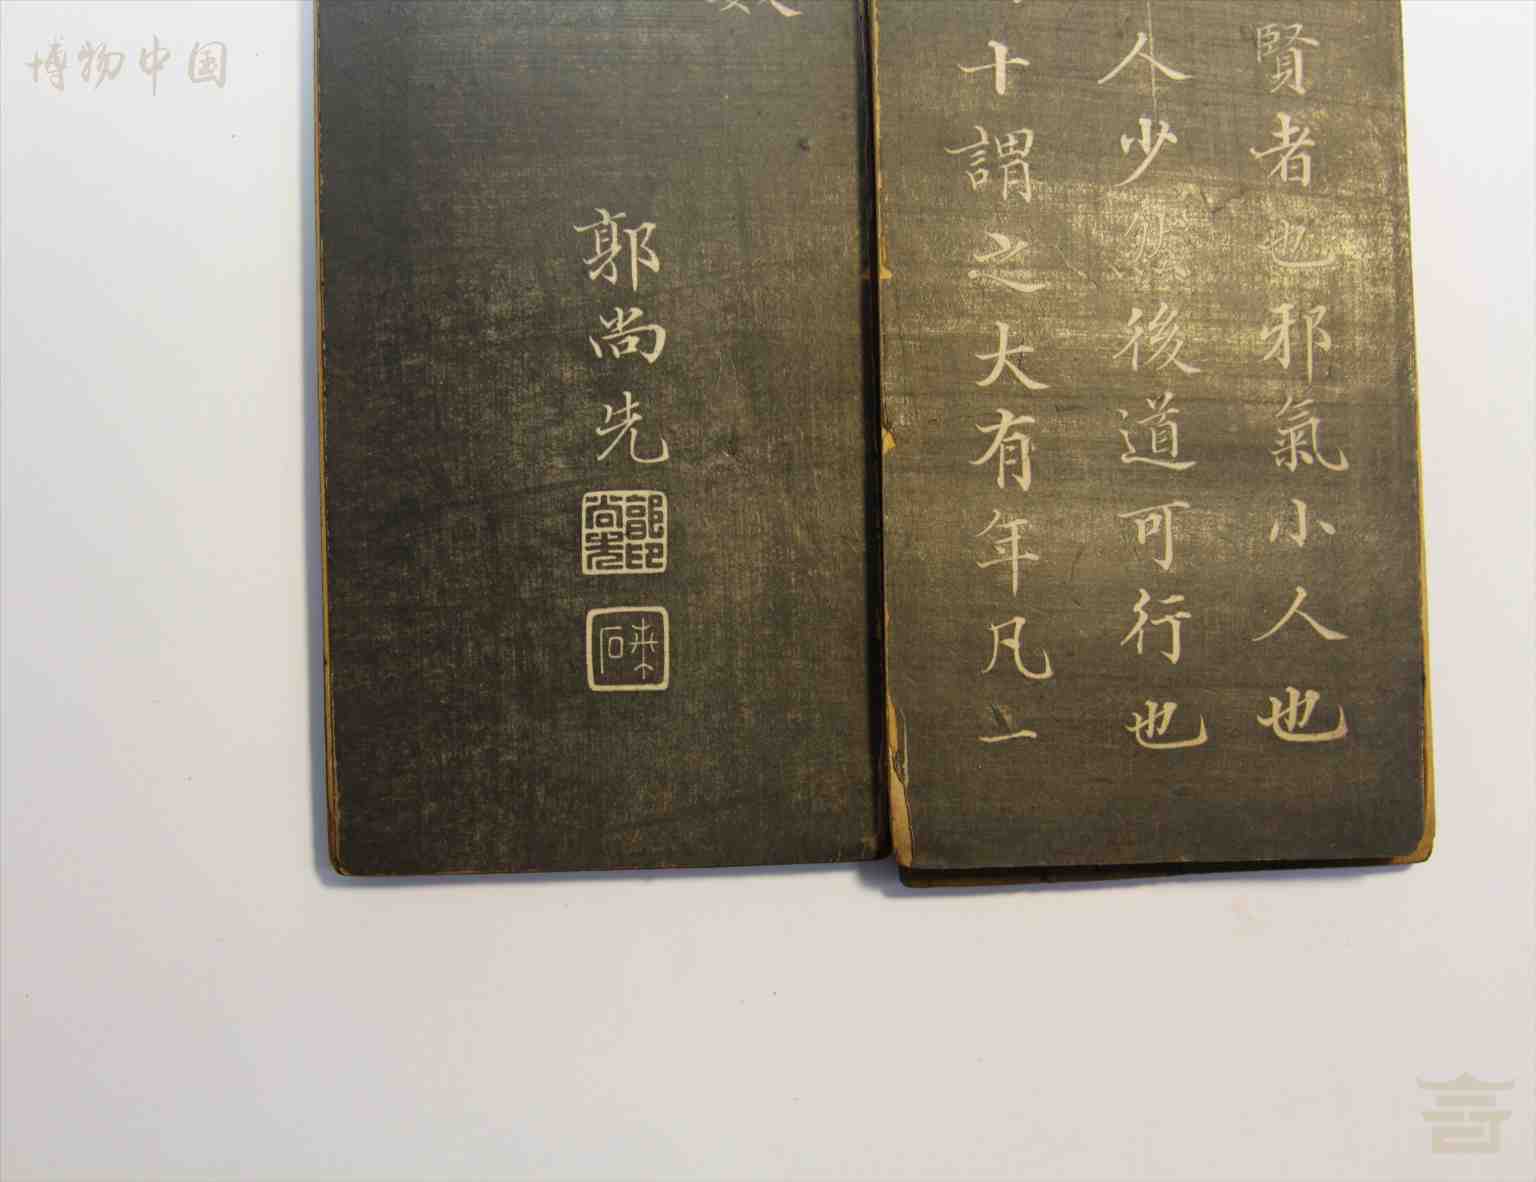 博物中国
賢者也邪氣小人也
人少然後道可行也
十謂之大有年凡一
郭尚先
郭尚先印